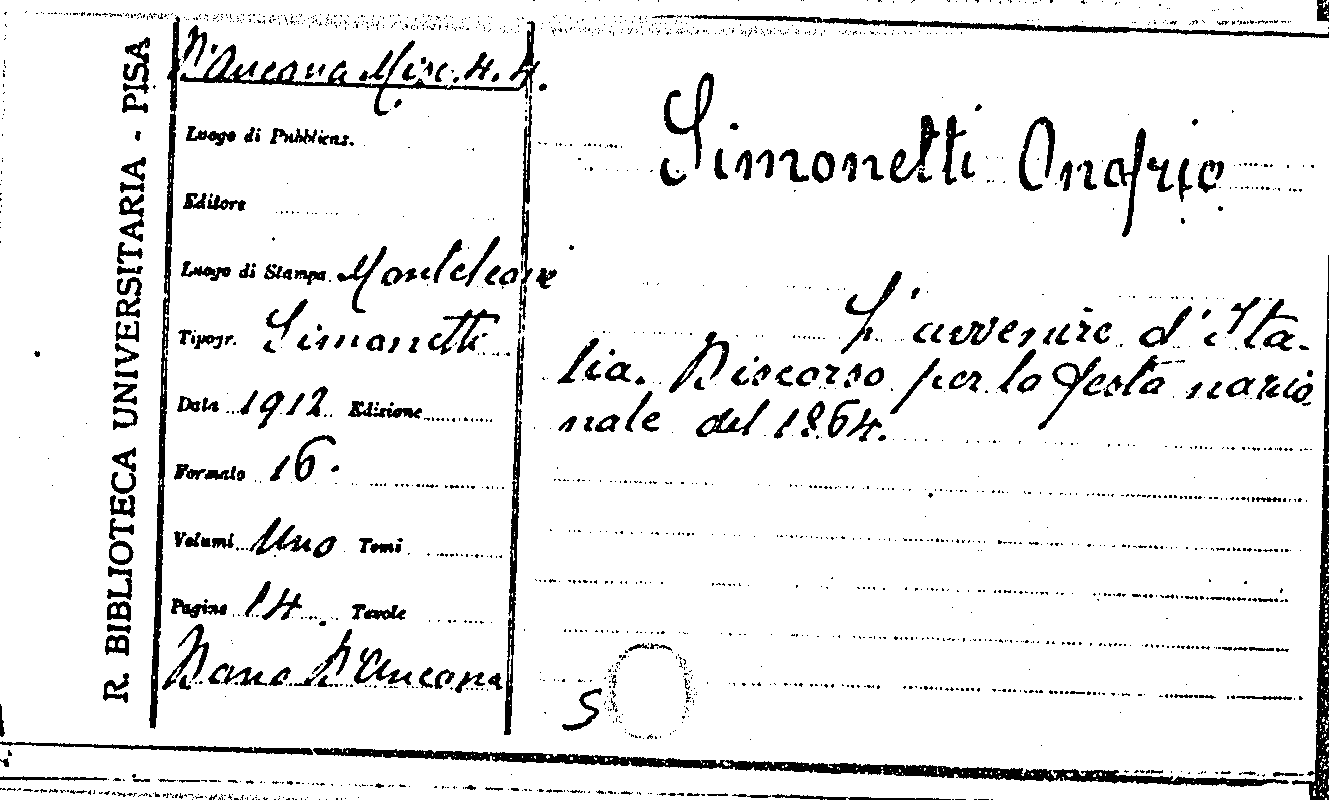 R. BIBLIOTECA UNIVERSITARIA - PISA
D'Ancona Misc. 4. 4.
Luogo di Pubblicaz.
Editore
Luogo di Stampa Monteleone
Tipogr. Simonetti
Data 1912 Edizione
Formato 16.
Volumi Uno Tomi
Pagine 14. Tavole
Dono D'Ancona
Simonetti Onofrio
L'avvenire d'Ita-
lia. Discorso per la festa nazio
nale del 1864.
S